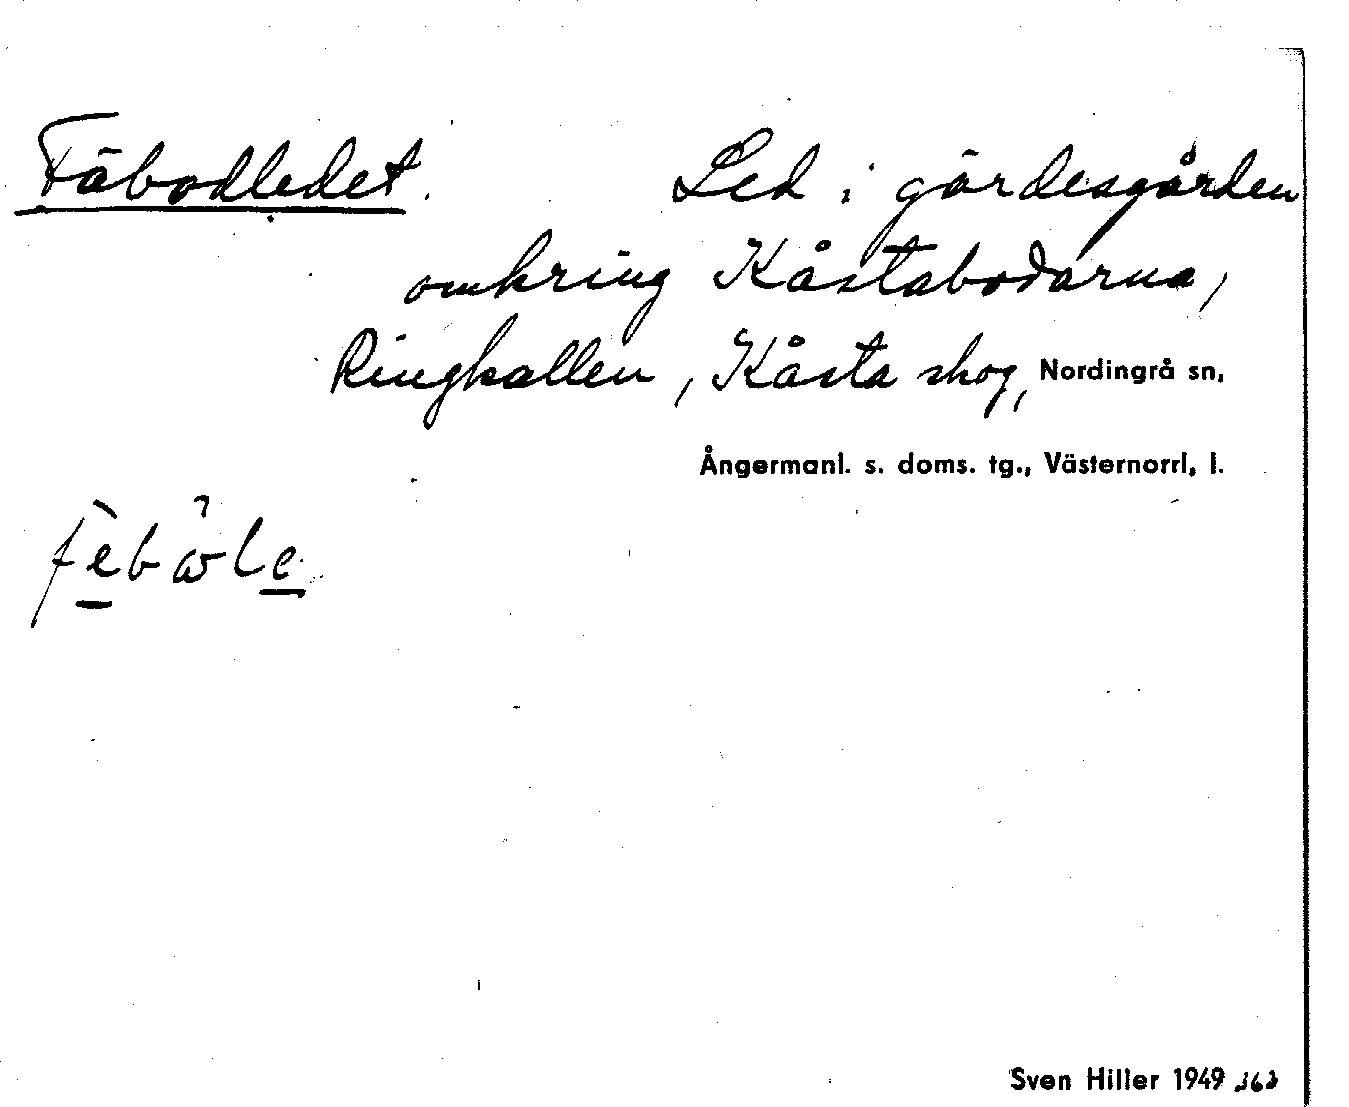 Fäbodledet. Led i gärdesgården
omkring Kåstabodarna,
Ringkallen, Kåsta skog, Nordingrå sn,
Ångermanl. s. doms. tg., Västernorrl, l.
fèbὼle
Sven Hiller 1949